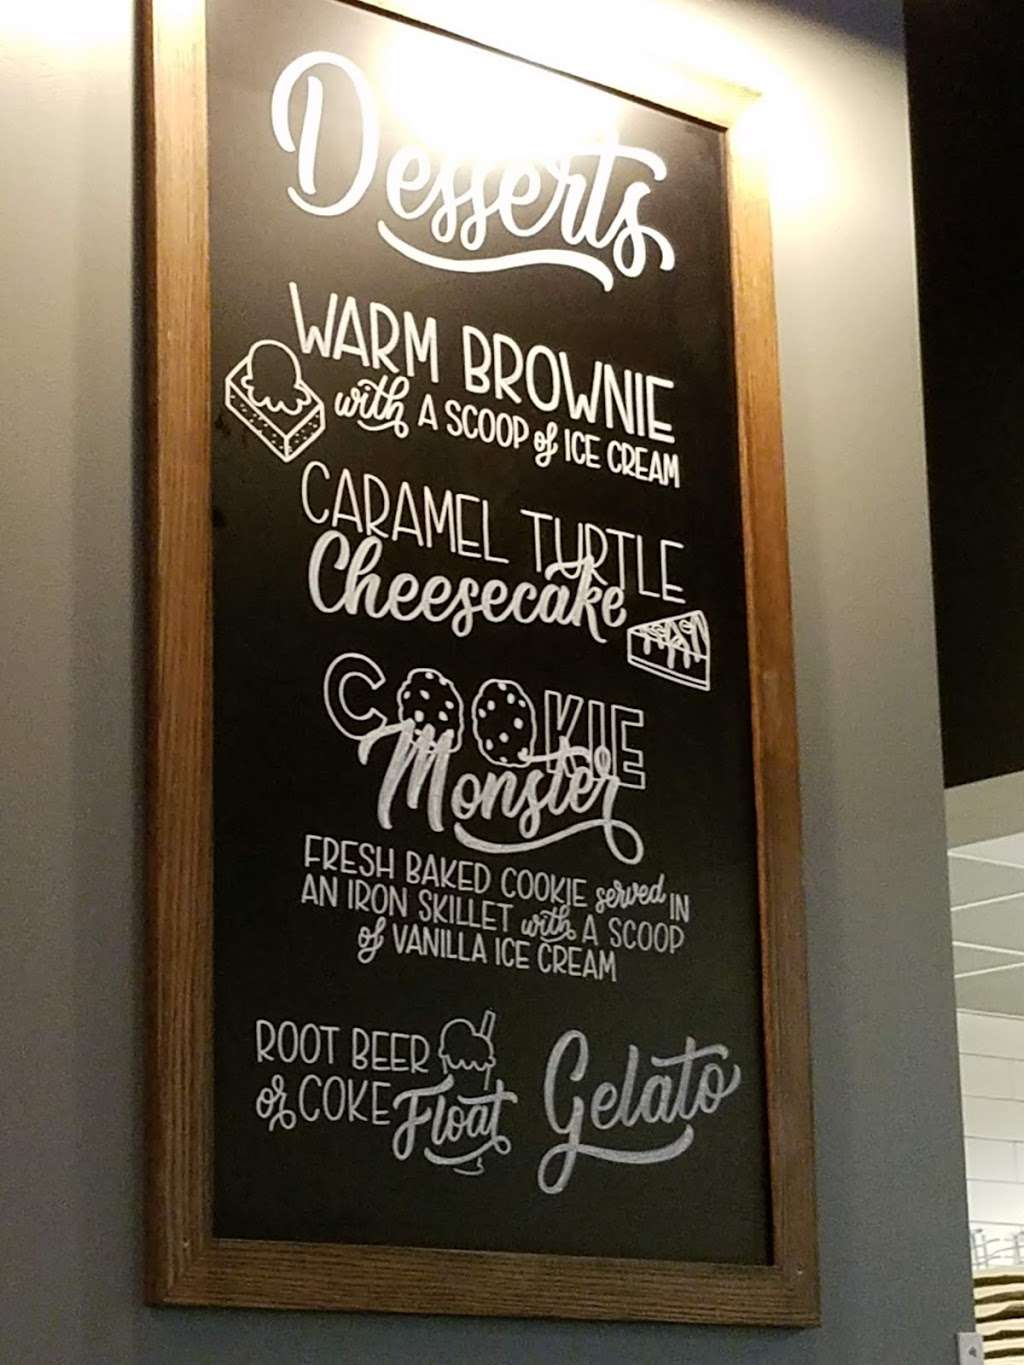 Desserts
WARM BROWNIE
with A SCOOP of ICE CREAM
CARAMEL TURTLE
Cheesecake
COOKIE
Monster
FRESH BAKED COOKIE served IN
AN IRON SKILLET with A SCOOP
of VANILLA ICE CREAM
ROOT BEER
or COKE Float
Gelato